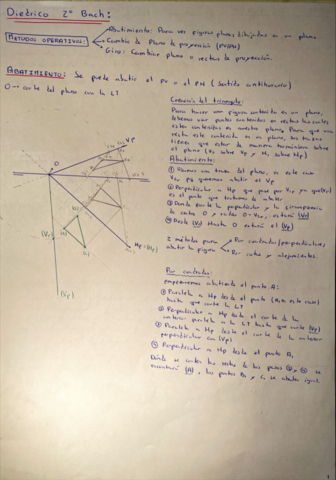 Diedrico 2º Bach:
MÉTODOS OPERATIVOS
Abatimiento: Para ver figuras planas dibujadas en un plano
Cambio de Plano de proyección (PV/PH)
Giro: Cambiar plano o rectas de proyección.
ABATIMIENTO: Se puede abatir el PV o el PH (Sentido antihorario)
O → corte del plano con la LT
Creación del triángulo:
Para hacer una figura contenida en un plano,
debemos usar puntos contenidos en rectas las cuales
estén contenidas en nuestro plano. Para que una
recta esté contenida en un plano, las trazas
tienen que estar de manera
el plano (Vs sobre Vp y Hs sobre Hp)
Abatimiento:
① una traza del plano, en este caso
queremos abatir el Vp
② Perpendicular a Hp que pase por
es el punto que tratamos de abatir
③ Donde corte la perpendicular y la circunferencia
de centro O y radio O-V, estará (V)
④ Desde (V) hasta O estará el (Vp)
2 métodos para abatir la figura
Por contradas/perpendiculares
Por cotas y alejamientos.
Por contradas:
empezaremos abatiendo el punto A:
① Paralela a Hp desde el punto
hasta que corte la LT
② Perpendicular a Hp desde el corte de la
anterior paralela a la LT hasta que corte (Vp)
③ Paralela a Hp desde el corte de la anterior
perpendicular con (Vp)
④ Perpendicular a Hp desde el punto A₁
Donde se corten las rectas de los pasos ③ y ④ se
encontrará (A), los puntos B y C, se abaten igual
O
Vp
Hp = (Hp)
(Vp)